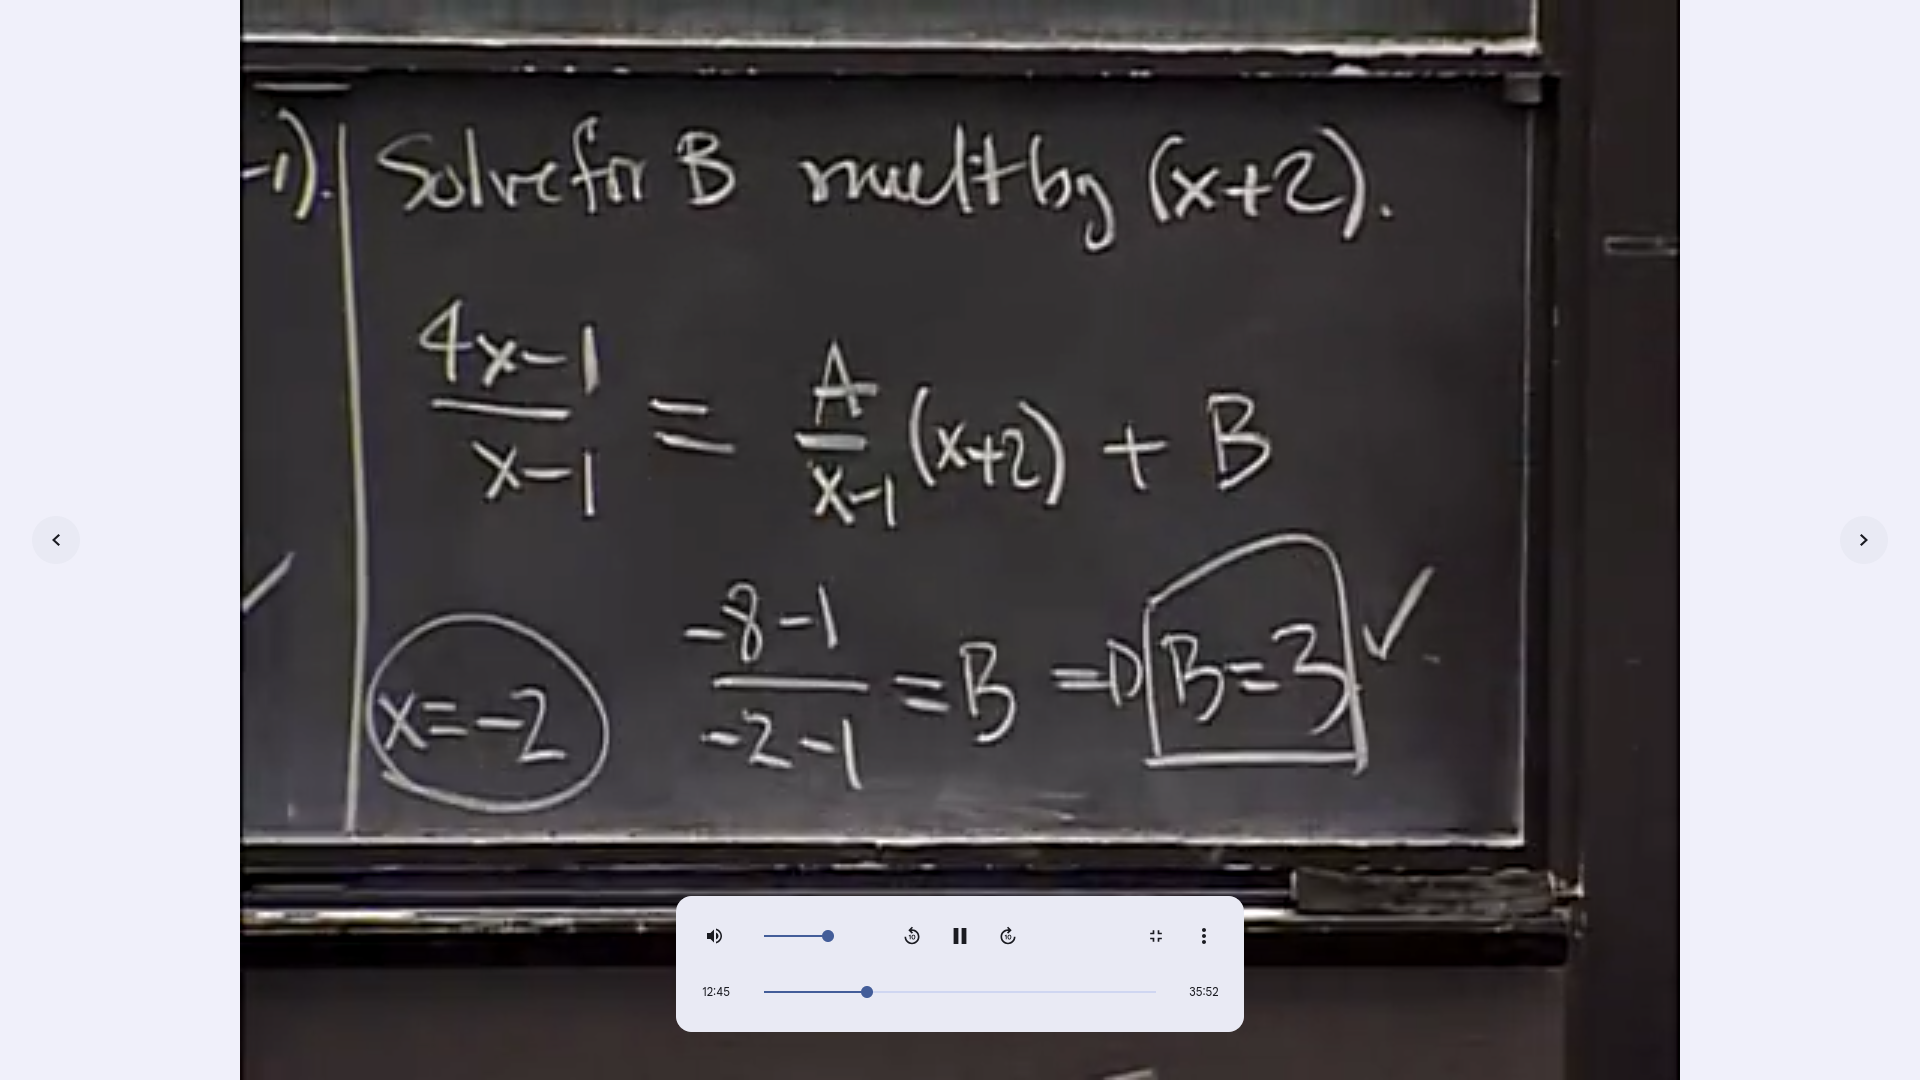 -1).
Solve for B mult by (x+2).
4x-1 / x-1 = A / x-1 (x+2) + B
x=-2
-8-1 / -2-1 = B => B=3 ✓
12:45
35:52